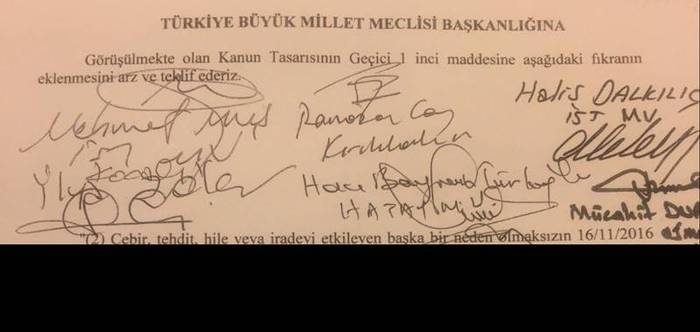 TÜRKİYE BÜYÜK MİLLET MECLİSİ BAŞKANLIĞINA
Görüşülmekte olan Kanun Tasarısının Geçici 1 inci maddesine aşağıdaki fıkranın
eklenmesini arz ve teklif ederiz.
Halis DALKILIÇ
İST MV
Mehmet
Ramazan Can
Kırıkkale
Hacı Bayram Türkoğlu
HATAY
Mücahit
"(2) Cebir, tehdit, hile veya iradeyi etkileyen başka bir neden olmaksızın 16/11/2016